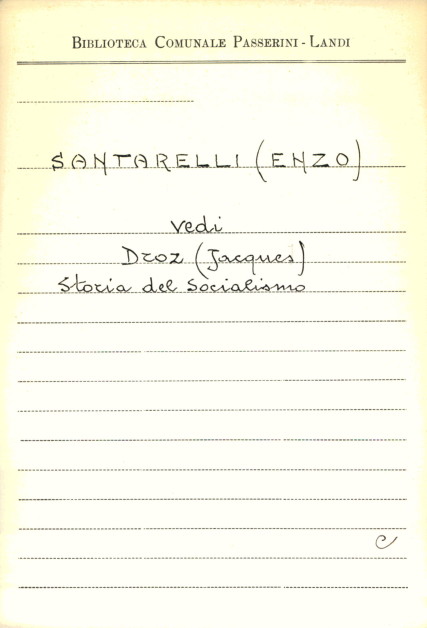 BIBLIOTECA COMUNALE PASSERINI - LANDI
SANTARELLI (ENZO)
vedi
Droz (Jacques)
Storia del Socialismo
C